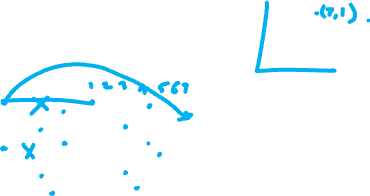 .(7,1).
1 2 3 4 5 6 7
X
X